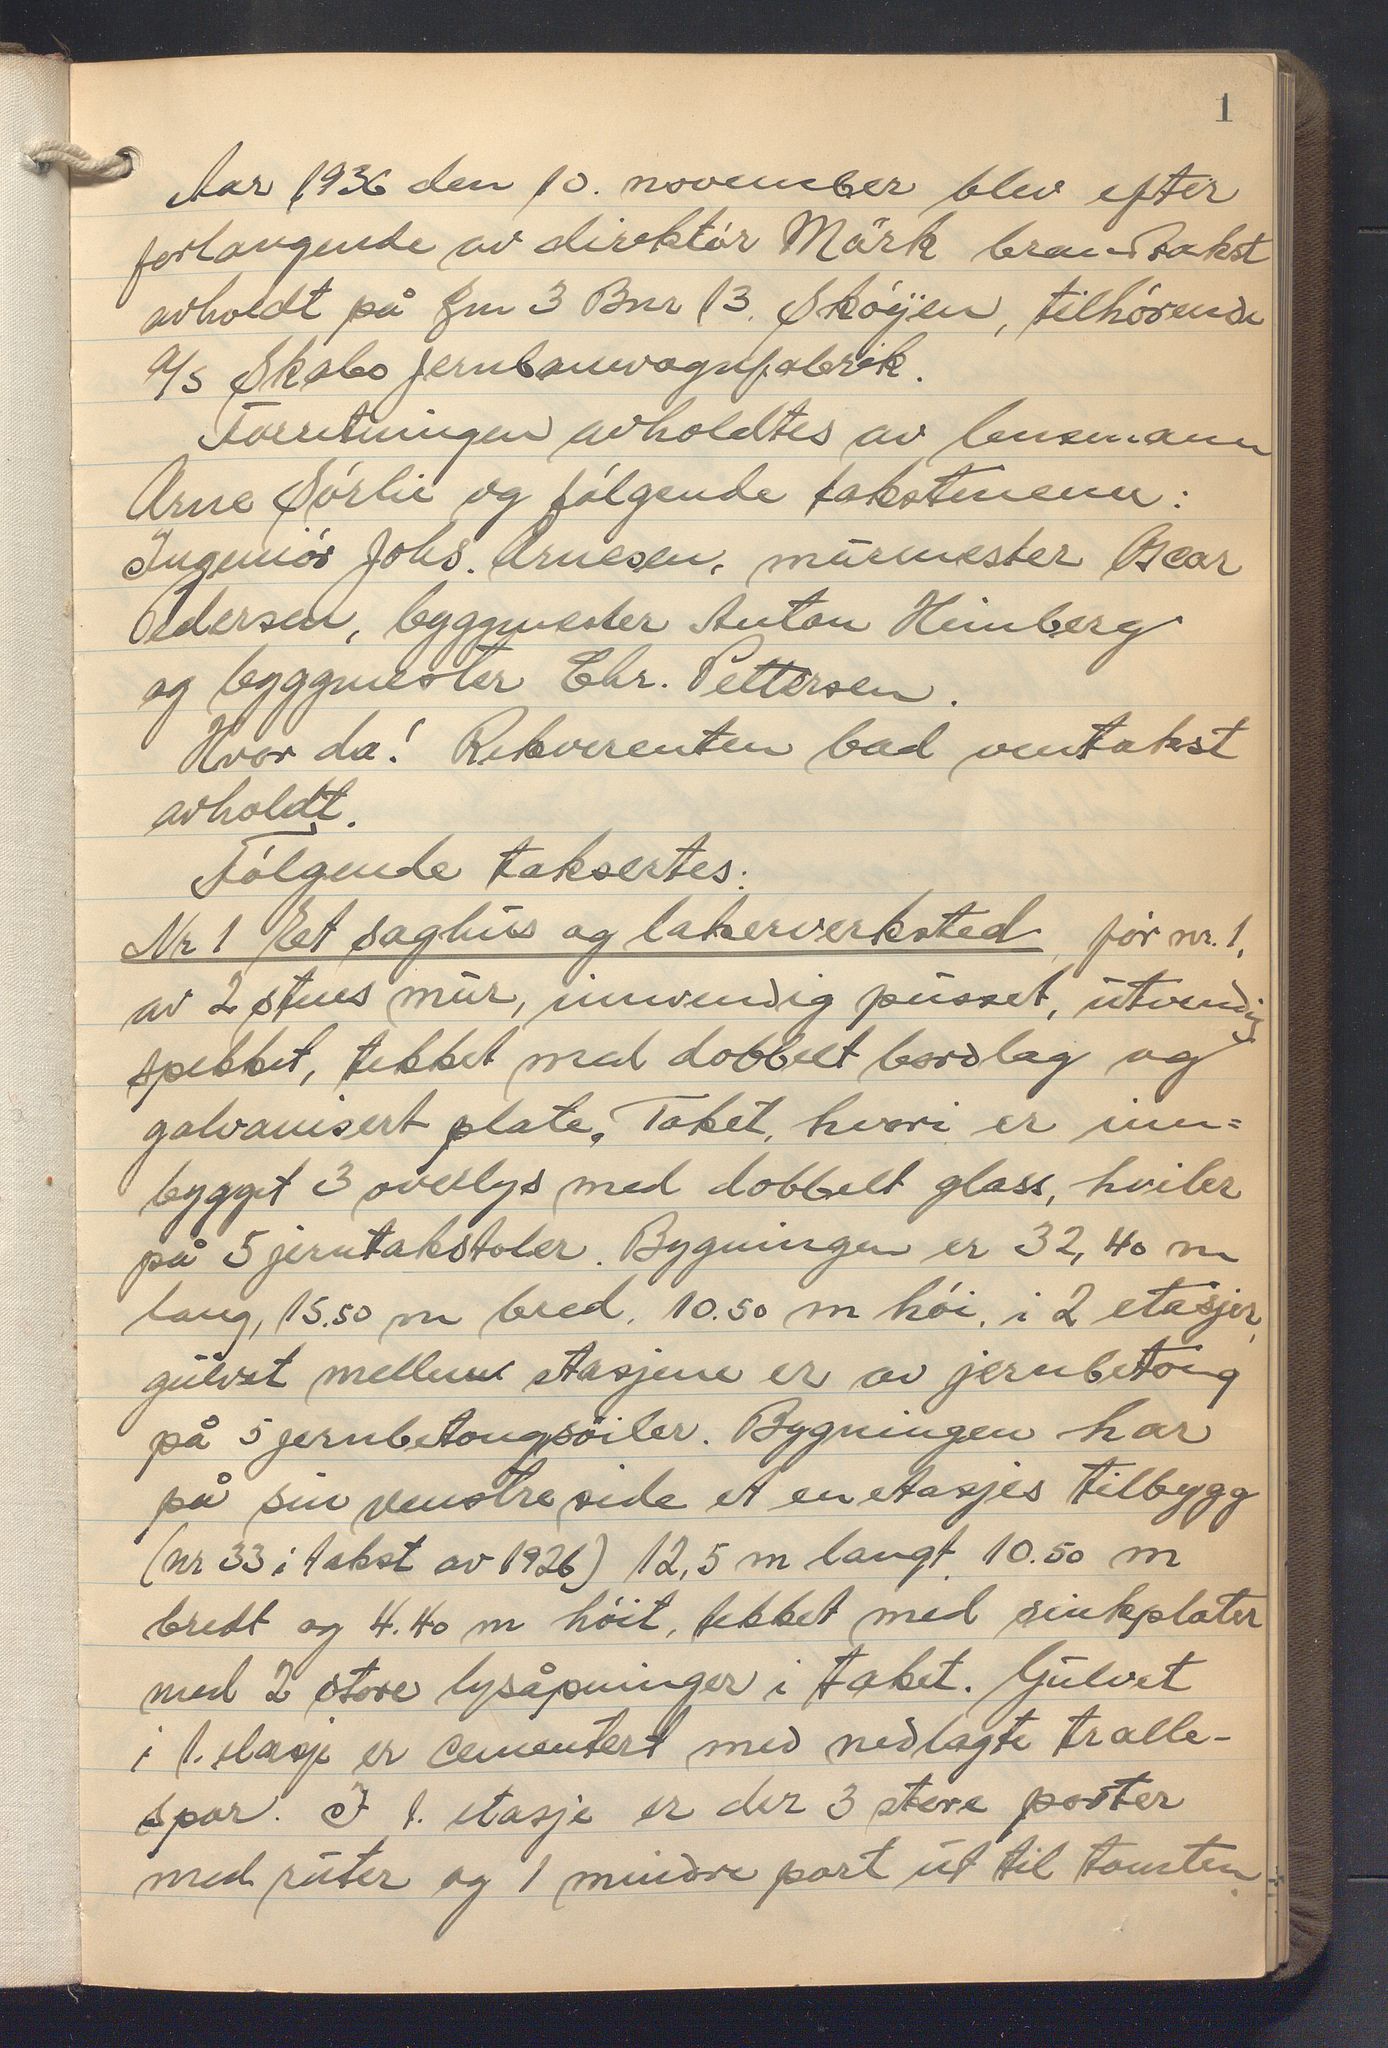 1
Aar 1936 den 10. november blev efter
forlangende av direktør Mörk brandtakst
avholdt på Gnr 3 Bnr 13. Skøyen, tilhørende
A/S Skabo jernbanevognfabrik.
Forretningen avholdtes av lensmann
Arne Sørlie og følgende takstmenn:
Ingeniør Johs. Arnesen, murmester Oscar
Pedersen, byggmester Anton Heimberg
og byggmester Chr. Pettersen.
Hvor da! Rekvirenten bad omtakst
avholdt.
Følgende taksertes:
Nr 1 Et saghus og lakerverksted, før nr. 1,
av 2 stens mur, innvendig pusset, utvendig
spekket, tekket med dobbelt bordlag og
galvanisert plate. Taket, hvori er inn=
bygget 3 overlys med dobbelt glass, hviler
på 5 jerntakstoler. Bygningen er 32,40 m
lang, 15.50 m bred, 10.50 m høi, i 2 etasjer,
gulvet mellem etasjene er av jernbetong
på 5 jernbetongsøiler. Bygningen har
på sin venstre side et enetasjes tilbygg
(nr 33 i takst av 1926) 12,5 m langt, 10.50 m
bredt og 4.40 m høit, tekket med sinkplater
med 2 store lysåpninger i taket. Gulvet
i 1. etasje er cementert med nedlagte tralle-
spor. I 1. etasje er der 3 store porter
med ruter og 1 mindre port ut til tomten.